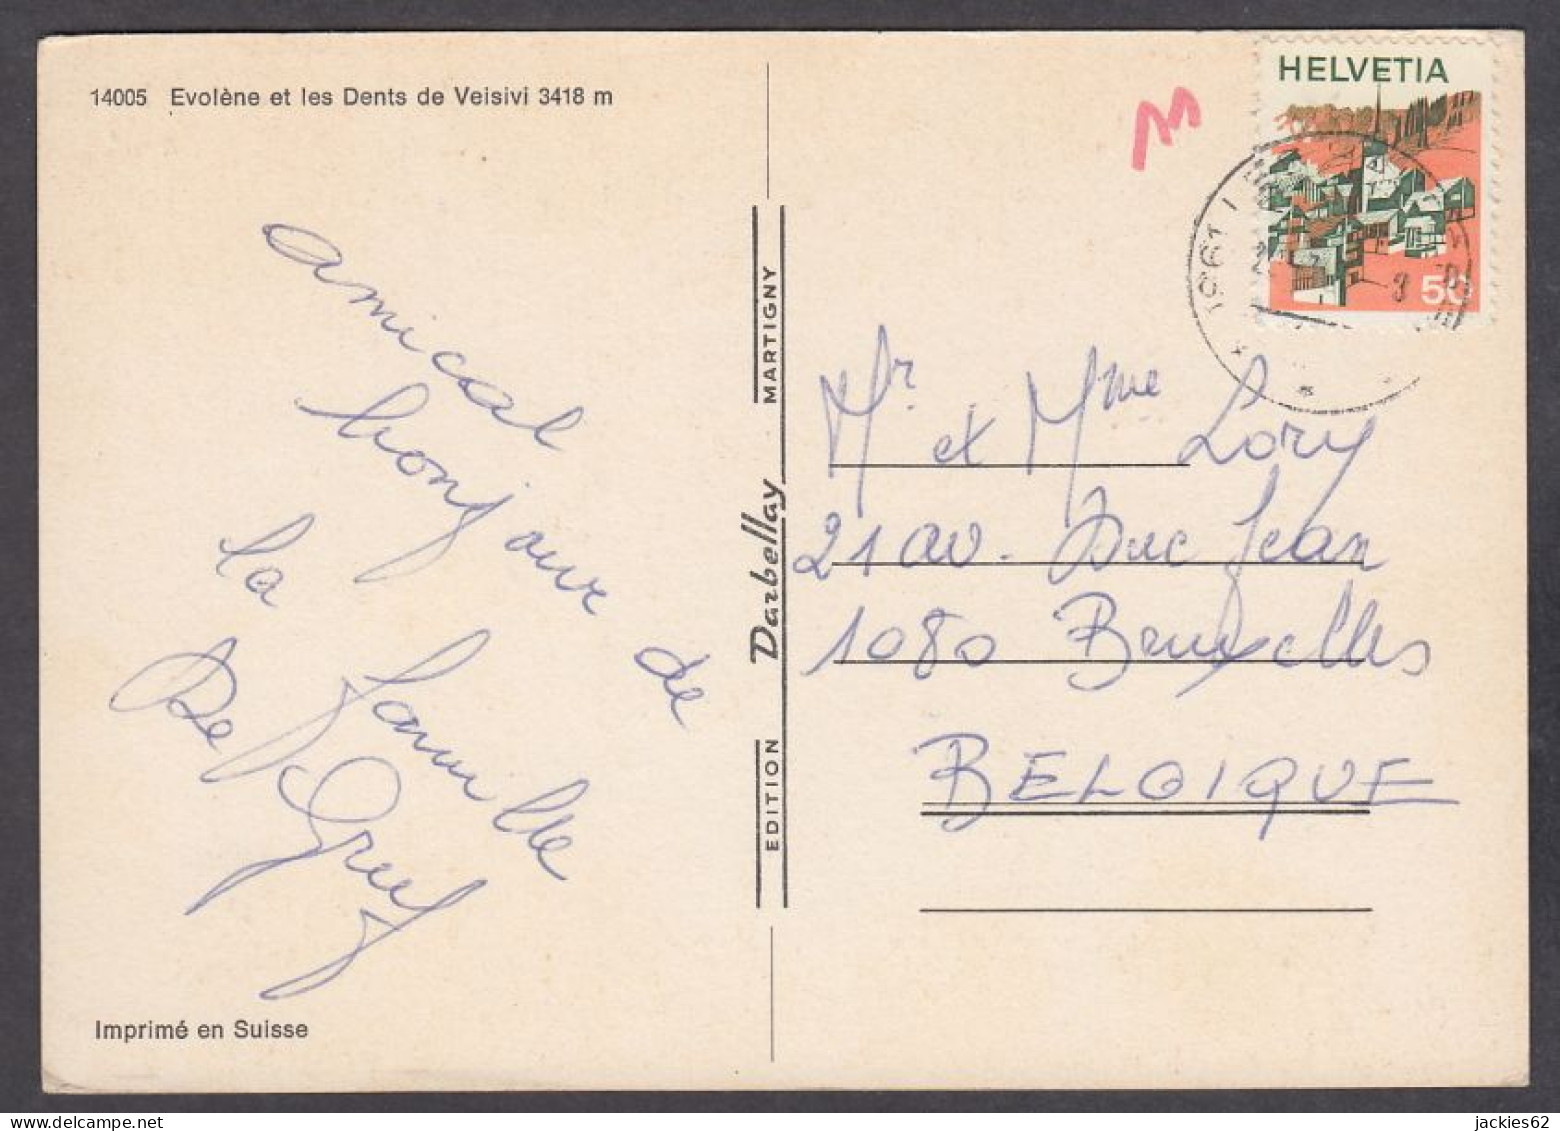 14005 Evolène et les Dents de Veisivi 3418 m
HELVETIA
50
1961
M
amical
bonjour de
la famille
De
Mr et Mme Lory
21 av. Duc Jean
1080 Bruxelles
BELGIQUE
EDITION Darbellay MARTIGNY
Imprimé en Suisse
jackies62